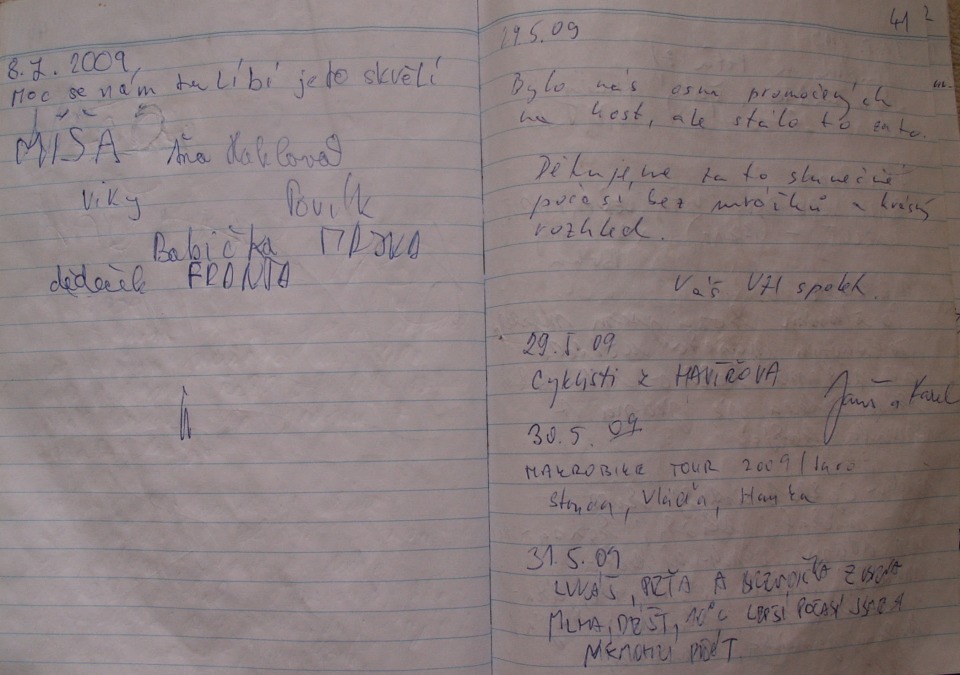 8.7.2009
moc se nám tu líbí je to skvělí
MÍŠA
Viky
Babička
dědeček FRANTA
41
29.5.09
Bylo nás osm promočených
na kost, ale stálo to za to.
Děkujeme za to slunečné
počasí bez mráčků a krásný
rozhled.
Váš VH spolek.
29.5.09
Cyklisti z HAVÍŘOVA
a Karel
30.5.09
MAKROBIKE TOUR 2009
Standa, Vláďa, Hanka
31.5.09
LUKÁŠ, A Z
MLHA, DÉŠŤ, 10°C LEPŠÍ POČASÍ JSME